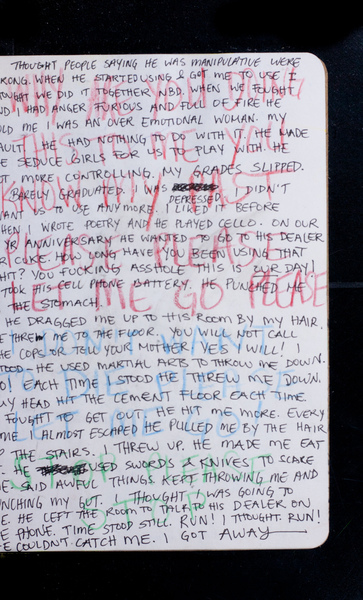 THOUGHT PEOPLE SAYING HE WAS MANIPULATIVE WERE
RONG. WHEN HE STARTED USING & GOT ME TO USE I
OUGHT WE DID IT TOGETHER, NBD. WHEN WE FOUGHT
ND I HAD ANGER FURIOUS AND FULL OF FIRE HE
OLD ME I WAS AN OVER EMOTIONAL WOMAN. MY
AULT. HE HAD NOTHING TO DO WITH IT. HE MADE
E SEDUCE GIRLS FOR US TO PLAY WITH. HE
OT MORE CONTROLLING. MY GRADES SLIPPED.
BARELY GRADUATED. I WAS DEPRESSED. I DIDN'T
ANT US TO USE ANYMORE. I LIKED IT BEFORE
HEN I WROTE POETRY AND HE PLAYED CELLO. ON OUR
YR ANNIVERSARY HE WANTED TO GO TO HIS DEALER
R COKE. HOW LONG HAVE YOU BEEN USING THAT
HIT? YOU FUCKING ASSHOLE THIS IS OUR DAY!
TOOK HIS CELL PHONE BATTERY. HE PUNCHED ME
THE STOMACH.
HE DRAGGED ME UP TO HIS ROOM BY MY HAIR.
E THREW ME TO THE FLOOR. YOU WILL NOT CALL
HE COPS OR TELL YOUR MOTHER! YES I WILL! I
TOOD. HE USED MARTIAL ARTS TO THROW ME DOWN.
O! EACH TIME I STOOD HE THREW ME DOWN.
MY HEAD HIT THE CEMENT FLOOR EACH TIME.
FOUGHT TO GET OUT. HE HIT ME MORE. EVERY
ME I ALMOST ESCAPED HE PULLED ME BY THE HAIR
P THE STAIRS. I THREW UP. HE MADE ME EAT
. HE USED SWORDS & KNIVES TO SCARE
E SAID AWFUL THINGS KEPT THROWING ME AND
NCHING MY GUT. I THOUGHT I WAS GOING TO
E. HE LEFT THE ROOM TO TALK TO HIS DEALER ON
E PHONE. TIME STOOD STILL. RUN! I THOUGHT. RUN!
E COULDN'T CATCH ME. I GOT AWAY
WHY ARE YOU DOING
THIS
YOU
KNOW MY PAST
PLEASE PLEASE
LET ME GO PLEASE
I DON'T WANT
TO DIE PLEASE
LET ME GO
STOP PLEASE
STOP